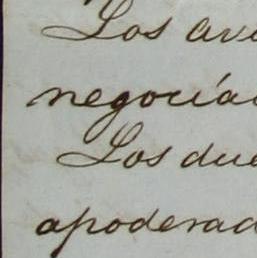 Los ava
negocia
Los due
apoderad